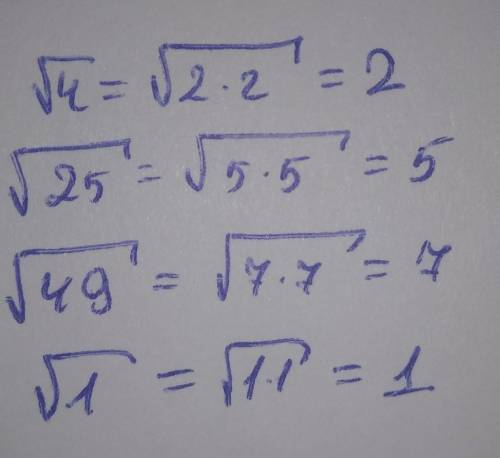 √4 = √2·2 = 2
√25 = √5·5 = 5
√49 = √7·7 = 7
√1 = √1·1 = 1